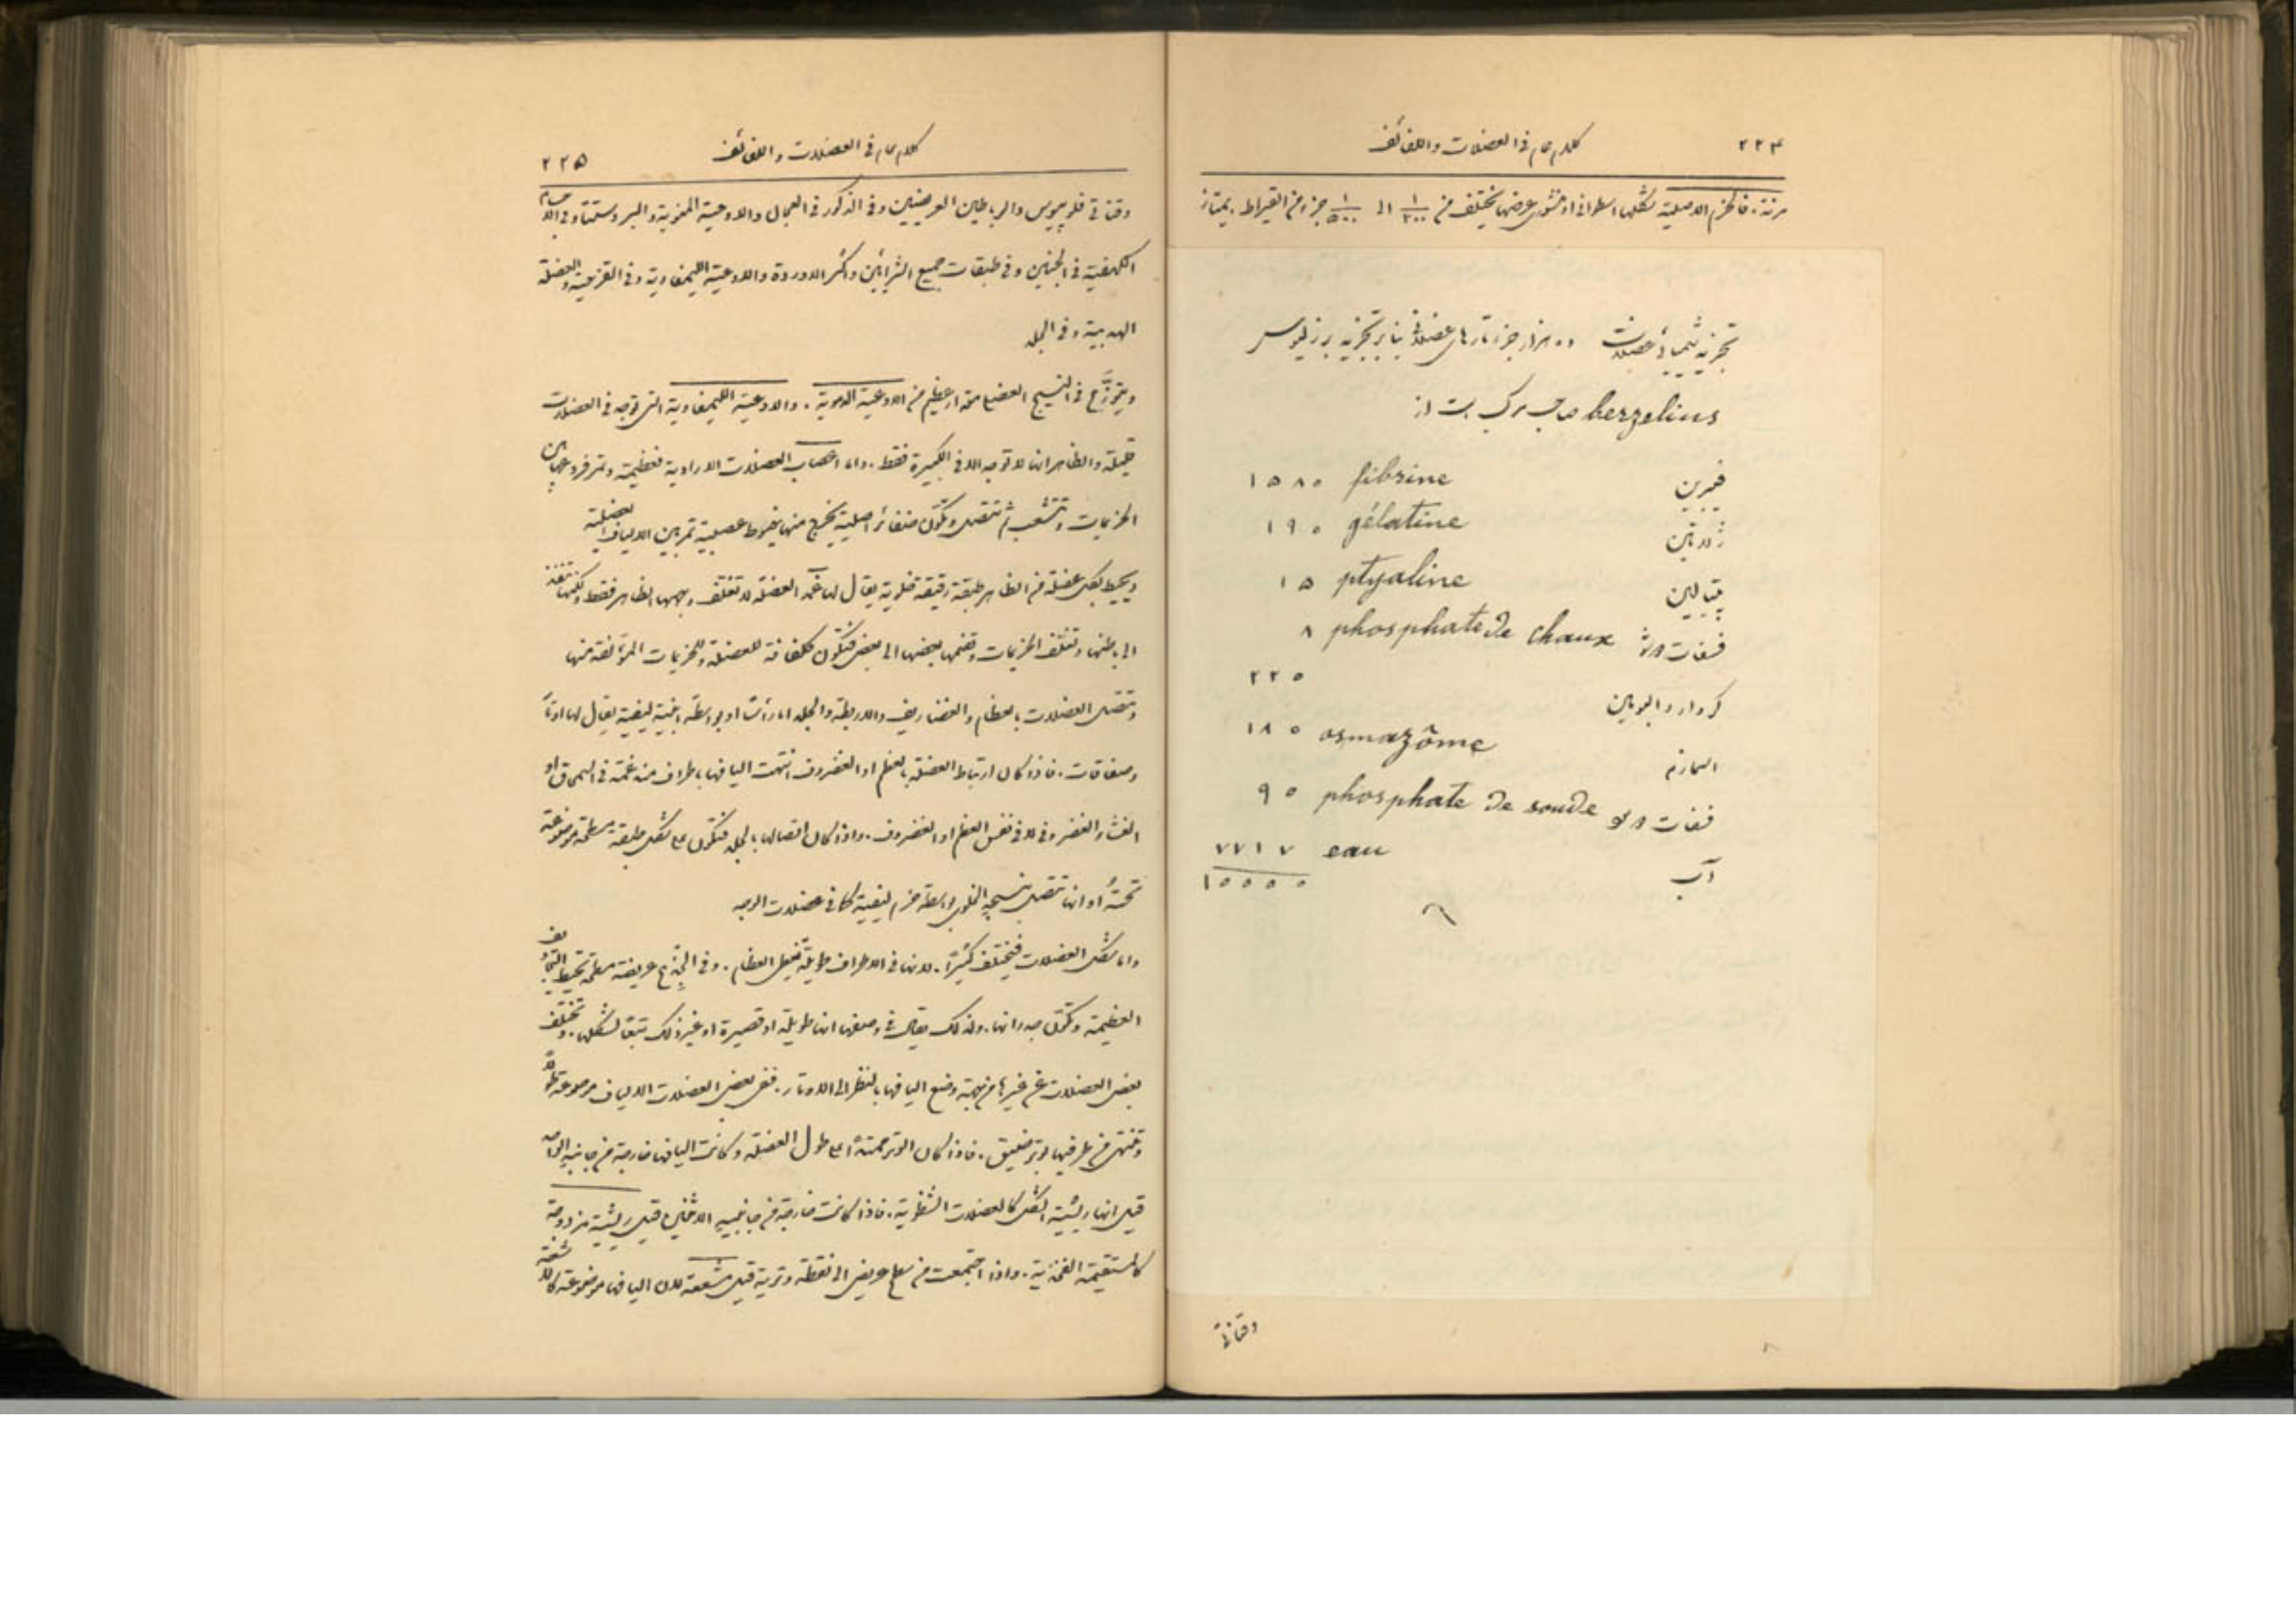 ٢٢٤
كلام عام في العضلات واللفائف
مرنة. فالحزم الاصلية شكلها اسطواني او منشوري عرضها يختلف من ١/٢٠٠ الى ١/٥٠٠ جزء من القيراط. يمتاز
تجزیه شیمیائی عضلات ده هزار جزء تارهای عضلانی بنابر تجزیه برزلیوس
berzelius مرکب است از
فیبرین fibrine ١٥٨٠
ژلاتین gélatine ١٩٠
پتیالین ptyaline ١٥
فسفات phosphate de chaux ٨
والبومین ٢٢٠
osmazôme ١٨٠
فسفات phosphate de soude ٩٠
آب eau ٧٧١٧
١٠٠٠٠
وقناتي
كلام عام في العضلات واللفائف
٢٢٥
وقناتي فلوبيوس والرباطين العريضين وفي الذكور في العجان والاوعية المنوية والبروستتا وفي الاجسام
الكهفية في الجنسين وفي طبقات جميع الشرايين واكثر الاوردة والاوعية الليمفاوية وفي القزحية والعضلة
الهدبية وفي الجلد
ويتوزَّع في النسيج العضلي مقدار عظيم من الاوعية الدموية. والاوعية الليمفاوية التي توجد في العضلات
قليلة والظاهر انها لا توجد الا في الكبيرة فقط. واما اعصاب العضلات الارادية فعظيمة وتمر فروعها بين
الحزيمات وتتشعب ثم تتصل وتكوّن ضفائر اصلية يخرج منها خيوط عصبية تمر بين الالياف العضلية
ويحيط بكل عضلة من الظاهر طبقة رقيقة خلوية يقال لها غمد العضلة لا تغلف وجهها الظاهر فقط ولكنها تنفذ
الى باطنها وتغلف الحزيمات وتضمها بعضها الى بعض فتكون كلفافة للعضلة وللحزيمات المؤلفة منها
وتتصل العضلات بالعظام والغضاريف والاربطة والجلد اما رأسًا او بواسطة ابنية ليفية يقال لها اوتار
وصفاقات. فاذا كان ارتباط العضلة بالعظم او الغضروف انتهت اليافها باطراف مندغمة في السمحاق او
الغشاء الغضروفي لا في نفس العظم او الغضروف. واذا كان اتصالها بالجلد فتكون على شكل طبقة مسطحة موضوعة
تحتهُ او انها تتصل بنسيجه الخلوي بواسطة حزم ليفية كما في عضلات الوجه
واما شكل العضلات فيختلف كثيرًا. لانها في الاطراف طويلة تغطي العظام. وفي الجذع عريضة مسطحة تحيط بالتجاويف
العظيمة وتكوّن جدرانها. ولذلك يقال في وصفها انها طويلة او قصيرة او غير ذلك تبعًا لشكلها. وتختلف
بعض العضلات عن غيرها من جهة وضع اليافها بالنظر الى الاوتار. ففي بعض العضلات الالياف موضوعة طولاً
وتنتهي من طرفيها بوتر ضيق. فاذا كان الوتر ممتدًّا على طول العضلة وكانت اليافها خارجة من جانبهِ الواحد
قيل انها ريشية الشكل كالعضلات الشظوية. فاذا كانت خارجة من جانبيهِ الاثنين قيل ريشية مزدوجة
كالمستقيمة الفخذية. واذا اجتمعت من سطح عريض الى نقطة وترية قيل مشععة لان اليافها موضوعة كالاشعة